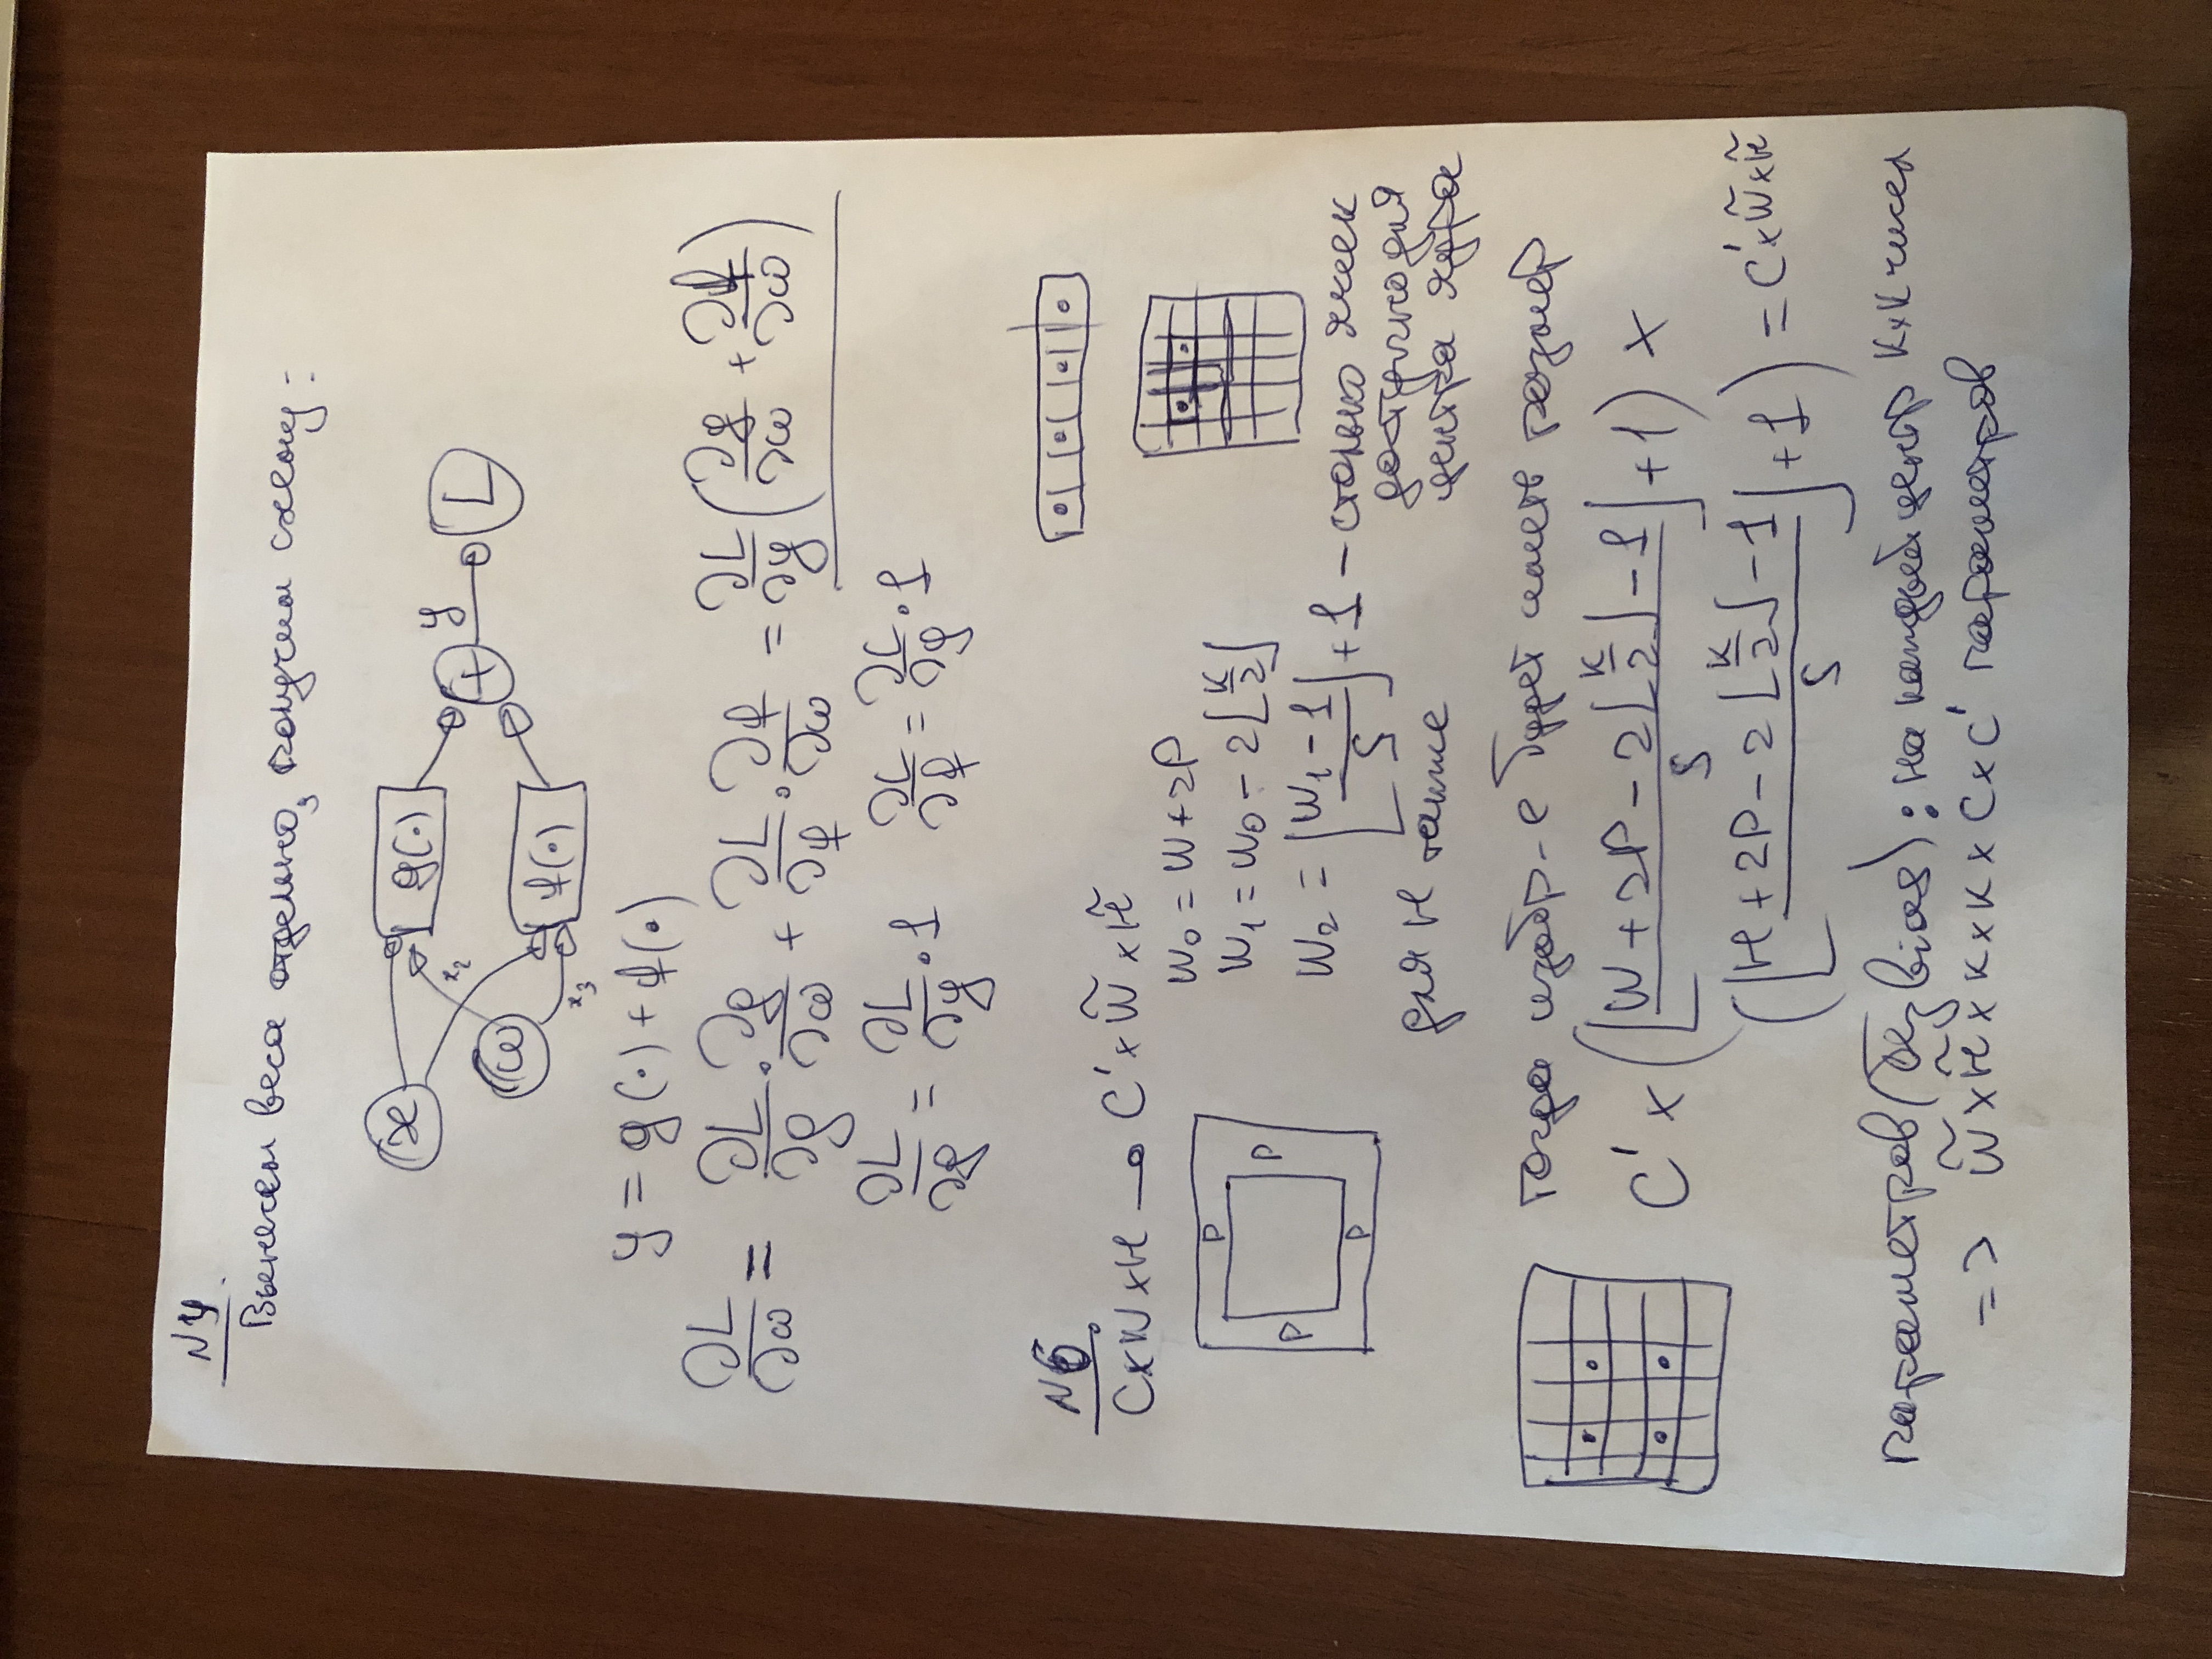 N4.
Вынесем веса отдельно, получим схему:
x g(·) + y L
x₂
ω f(·)
x₃
y = g(·) + f(·)
∂L/∂ω = ∂L/∂g · ∂g/∂ω + ∂L/∂f · ∂f/∂ω = ∂L/∂y (∂g/∂ω + ∂f/∂ω)
∂L/∂g = ∂L/∂y · 1 ∂L/∂f = ∂L/∂y · 1
N6.
C×W×H → C'×W̃×H̃
W₀ = W + 2P
W₁ = W₀ − 2⌊K/2⌋
W₂ = ⌊(W₁ − 1)/S⌋ + 1 – столько ячеек
доступно для
центра ядра
для H также
P
P
P
P
тогда изобр-е будет иметь размер
C' × (⌊(W + 2P − 2⌊K/2⌋ − 1)/S⌋ + 1) ×
(⌊(H + 2P − 2⌊K/2⌋ − 1)/S⌋ + 1) = C'×W̃×H̃
параметров (без bias): на каждый центр K×K чисел
=> W̃×H̃×K×K×C×C' параметров